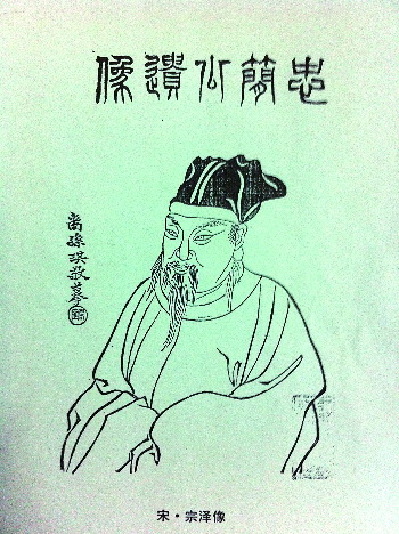 忠簡公遺像
裔孫琪敬摹
宋·宗泽像